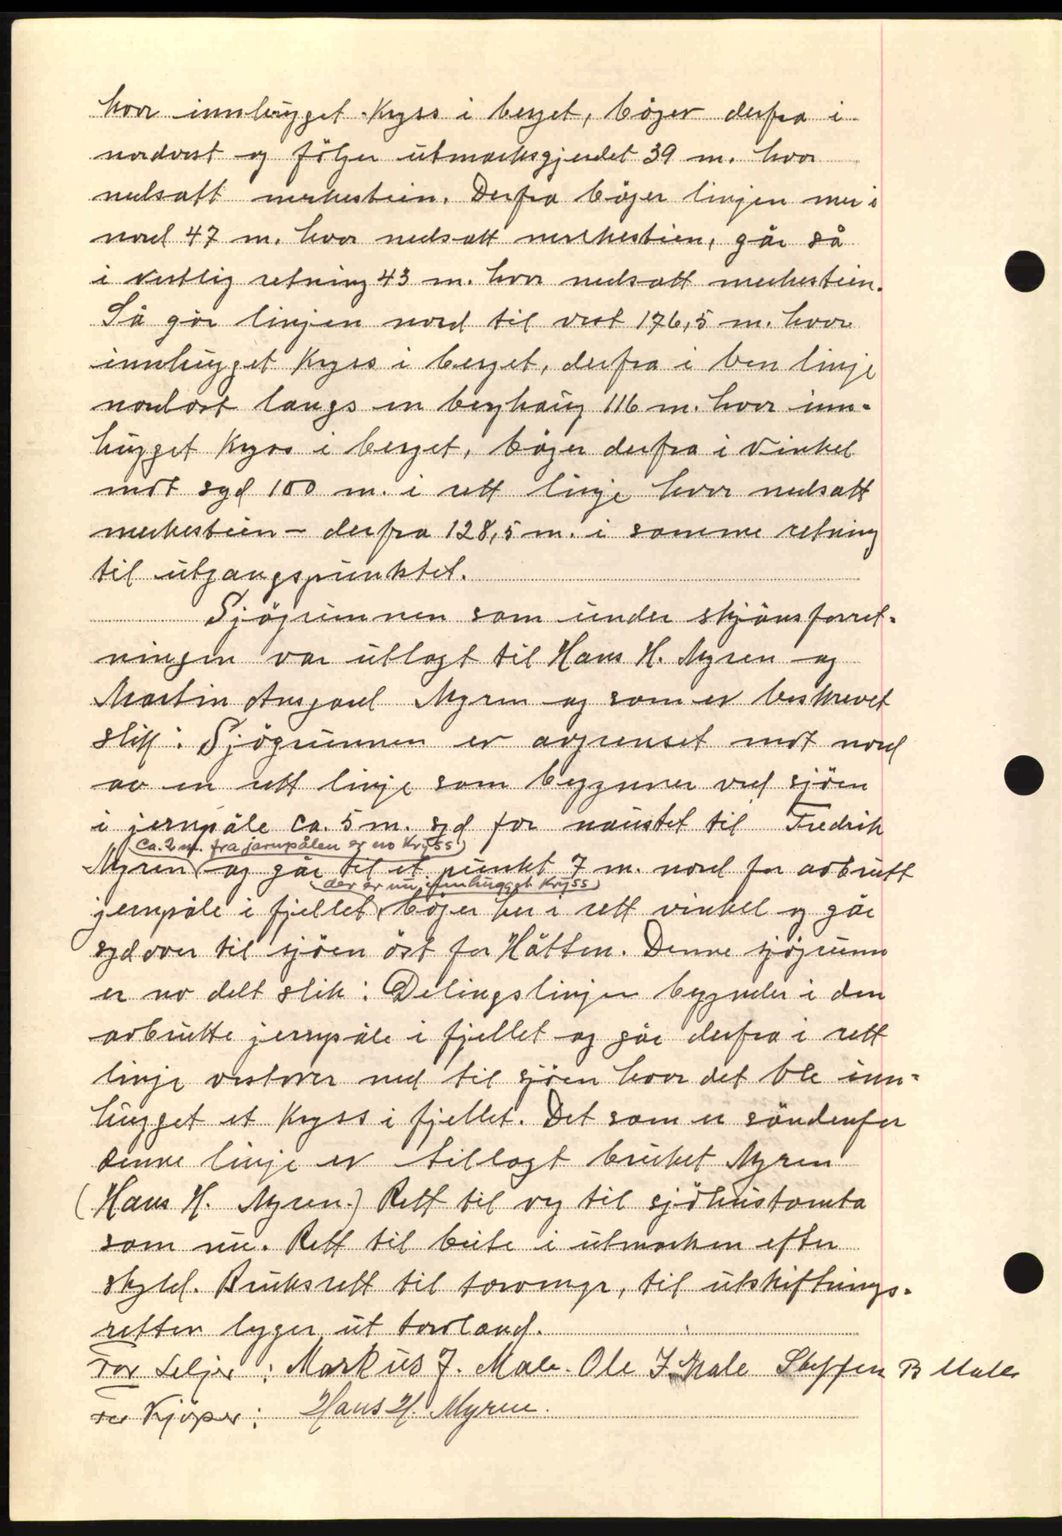 hvor innhugget kryss i berget, böyer derfra i
nordvest og fölger utmarksgjerdet 39 m. hvor
nedsatt merkestein. Derfra böyer linjen mer i
nord 47 m. hvor nedsatt merkestien, går så
i vestlig retning 43 m. hvor nedsatt merkestien.
Så går linjen nord til vest 176,5 m. hvor
innhugget kryss i berget, derfra i ben linje
nordöst langs en berghaug 116 m. hvor inn-
hugget kryss i berget, böyer derfra i vinkel
mot syd 100 m. i rett linje hvor nedsatt
merkestein – derfra 128,5 m. i samme retning
til utgangspunktet.
Sjögrunnen som under skjönsforret-
ningen var utlagt til Hans H. Myren og
Martin Ansgard Myren og som er beskrevet
slik: Sjögrunnen er avgrenset mot nord
av en rett linje som begynner ved sjöen
i jernpåle ca. 5 m. syd for naustet til Fredrik
(ca. 2 m. fra jernpålen er no kryss)
Myren og går til et punkt 7 m. nord for avbrutt
(der er nu innhugget kryss)
jernpåle i fjellet, böyer her i rett vinkel og går
sydover til sjöen öst for Håtten. Denne sjögrunn
er no delt slik: Delingslinjen begynder i den
avbrutte jernpåle i fjellet og går derfra i rett
linje vestover ned til sjöen hvor det ble inn-
hugget et kryss i fjellet. Det som er söndenfor
denne linje er tillagt bruket Myren
(Hans H. Myren.) Rett til vej til sjöhustomta
som nu. Rett til beite i utmarken efter
skyld. Bruksrett til torvmyr, til utskiftnings-
retten legger ut torvland.
For Seljer: Markus J. Male. Ole J. Male Steffen B Male
For Kjöper: Hans H. Myren.